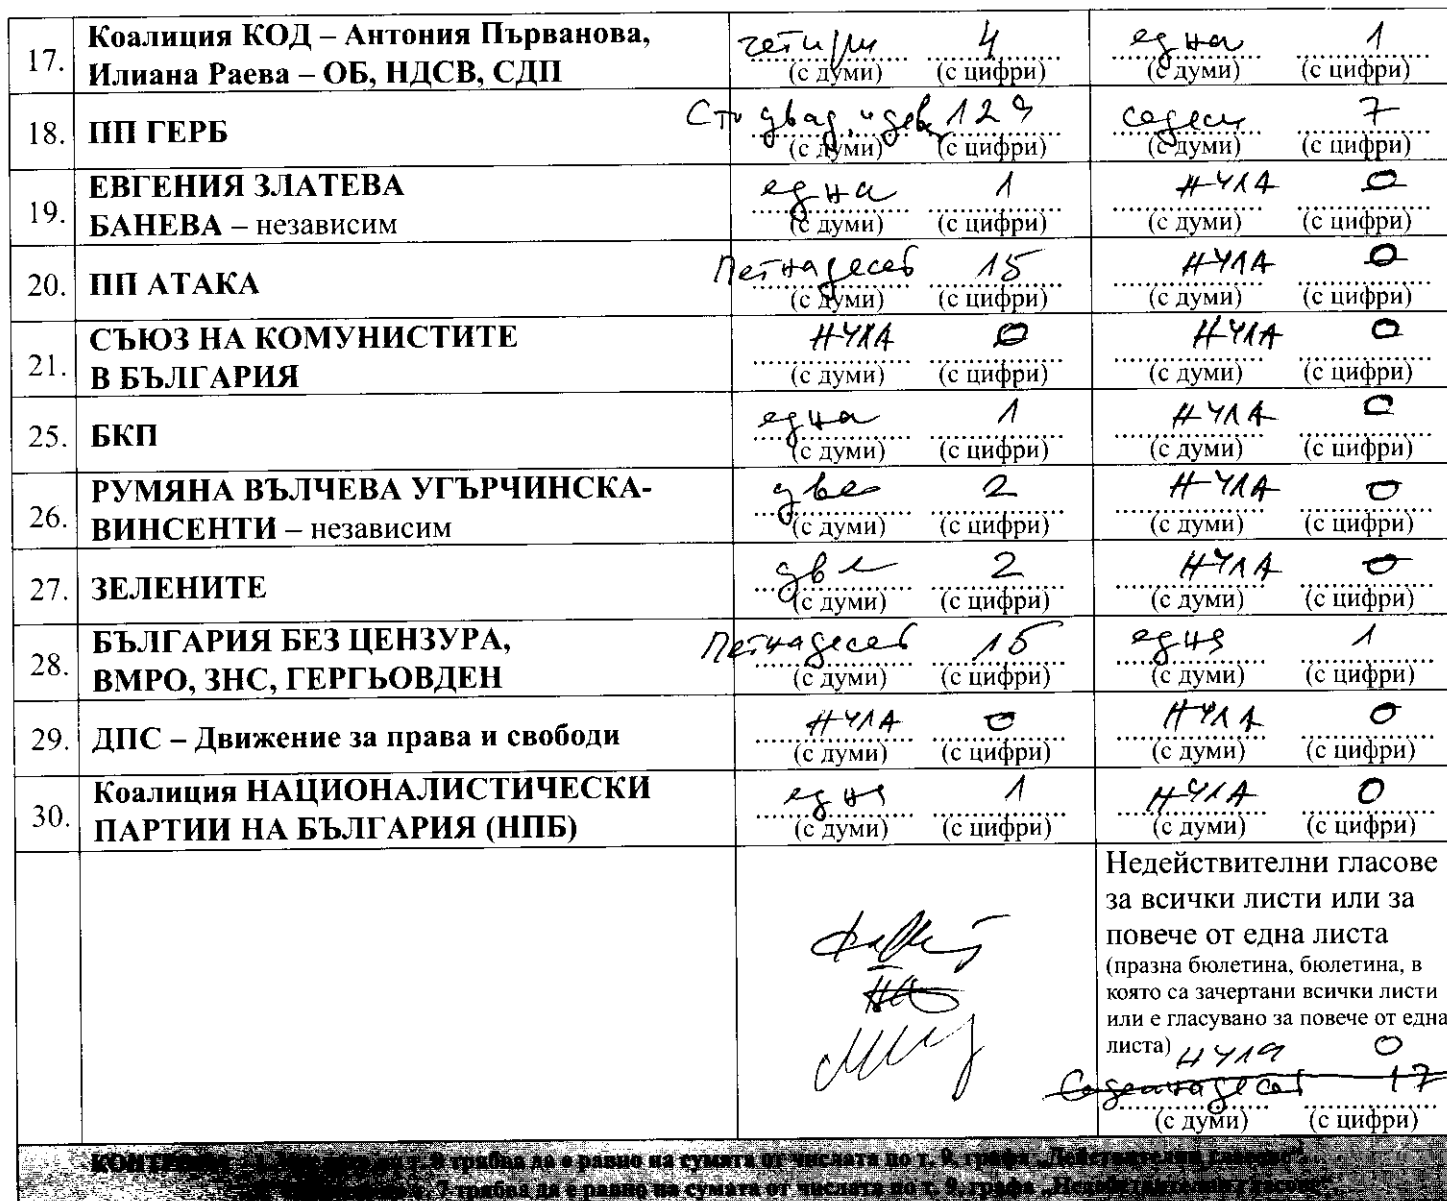 17. Коалиция КОД – Антония Първанова,
Илиана Раева – ОБ, НДСВ, СДП
четири 4 една 1
(с думи) (с цифри) (с думи) (с цифри)
18. ПП ГЕРБ
Сто двад. и дев 129 седем 7
(с думи) (с цифри) (с думи) (с цифри)
19. ЕВГЕНИЯ ЗЛАТЕВА
БАНЕВА – независим
една 1 НУЛА 0
(с думи) (с цифри) (с думи) (с цифри)
20. ПП АТАКА
Петнадесет 15 НУЛА 0
(с думи) (с цифри) (с думи) (с цифри)
21. СЪЮЗ НА КОМУНИСТИТЕ
В БЪЛГАРИЯ
НУЛА 0 НУЛА 0
(с думи) (с цифри) (с думи) (с цифри)
25. БКП
една 1 НУЛА 0
(с думи) (с цифри) (с думи) (с цифри)
26. РУМЯНА ВЪЛЧЕВА УГЪРЧИНСКА-
ВИНСЕНТИ – независим
две 2 НУЛА 0
(с думи) (с цифри) (с думи) (с цифри)
27. ЗЕЛЕНИТЕ
две 2 НУЛА 0
(с думи) (с цифри) (с думи) (с цифри)
28. БЪЛГАРИЯ БЕЗ ЦЕНЗУРА,
ВМРО, ЗНС, ГЕРГЬОВДЕН
Петнадесет 15 една 1
(с думи) (с цифри) (с думи) (с цифри)
29. ДПС – Движение за права и свободи
НУЛА 0 НУЛА 0
(с думи) (с цифри) (с думи) (с цифри)
30. Коалиция НАЦИОНАЛИСТИЧЕСКИ
ПАРТИИ НА БЪЛГАРИЯ (НПБ)
една 1 НУЛА 0
(с думи) (с цифри) (с думи) (с цифри)
Недействителни гласове
за всички листи или за
повече от една листа
(празна бюлетина, бюлетина, в
която са зачертани всички листи
или е гласувано за повече от една
листа) НУЛА 0
Седемнадесет 17
(с думи) (с цифри)
трябва да е равно на сумата от числата по т. 9, графа „Действителни гласове“.
7 трябва да е равно на сумата от числата по т. 9, графа „Недействителни гласове“.